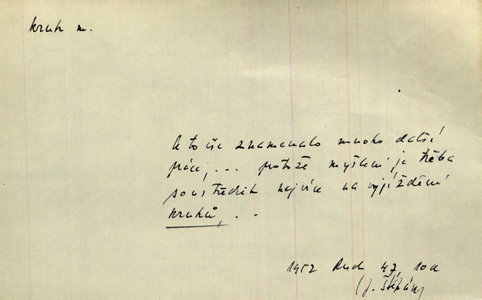 kruh m.
A to vše znamenalo mnoho další
práce, ... protože myšlení je třeba
soustředit nejvíce na vyjíždění
kruhů, ..
1952 Rud 47, 10a
(J. Štěpán)